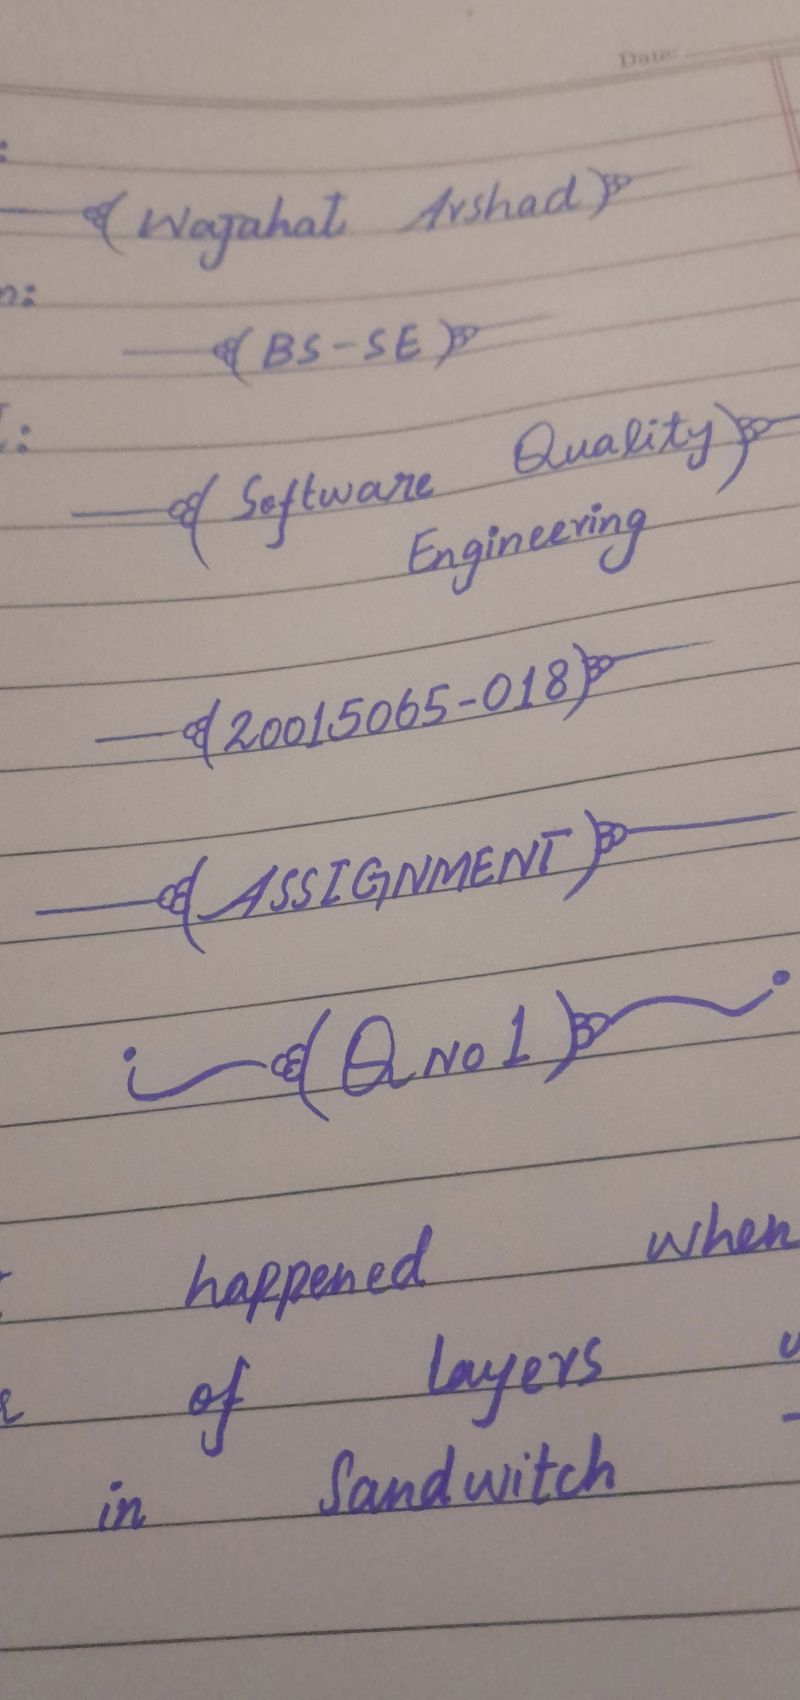 Date:
(Wajahat Arshad)
(BS-SE)
(Software Quality)
Engineering
(20015065-018)
(ASSIGNMENT)
(Q No 1)
happened when
of layers
in Sandwitch